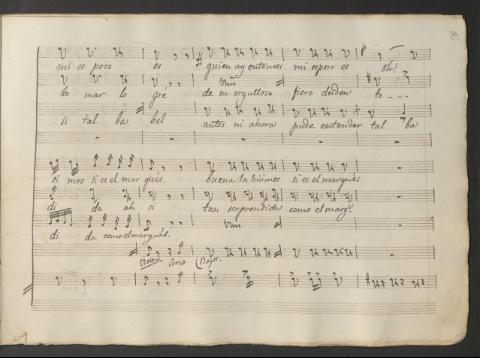 29
mi es poso es quien ay entonces mi esposo es
to mar lo gré de su orgulloso fiero desden to
si tal ba bel antes ni ahora pude entender tal ba
si mos si es el mar qués. buena la hicimos si es el marqués
di da ah si tan sorprendida como el marq.s
di da como el marqués.
Arco